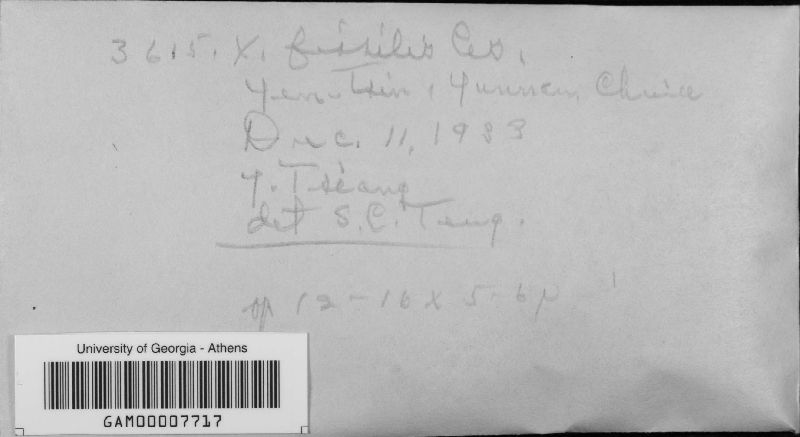 3615. X. fissilis Ces.
Yen-Tsin, Yunnan, China
Dec. 11, 1933
Y. Tsiang
det S. C. Teng.
sp 12-16 x 5-6µ
University of Georgia - Athens
GAM00007717